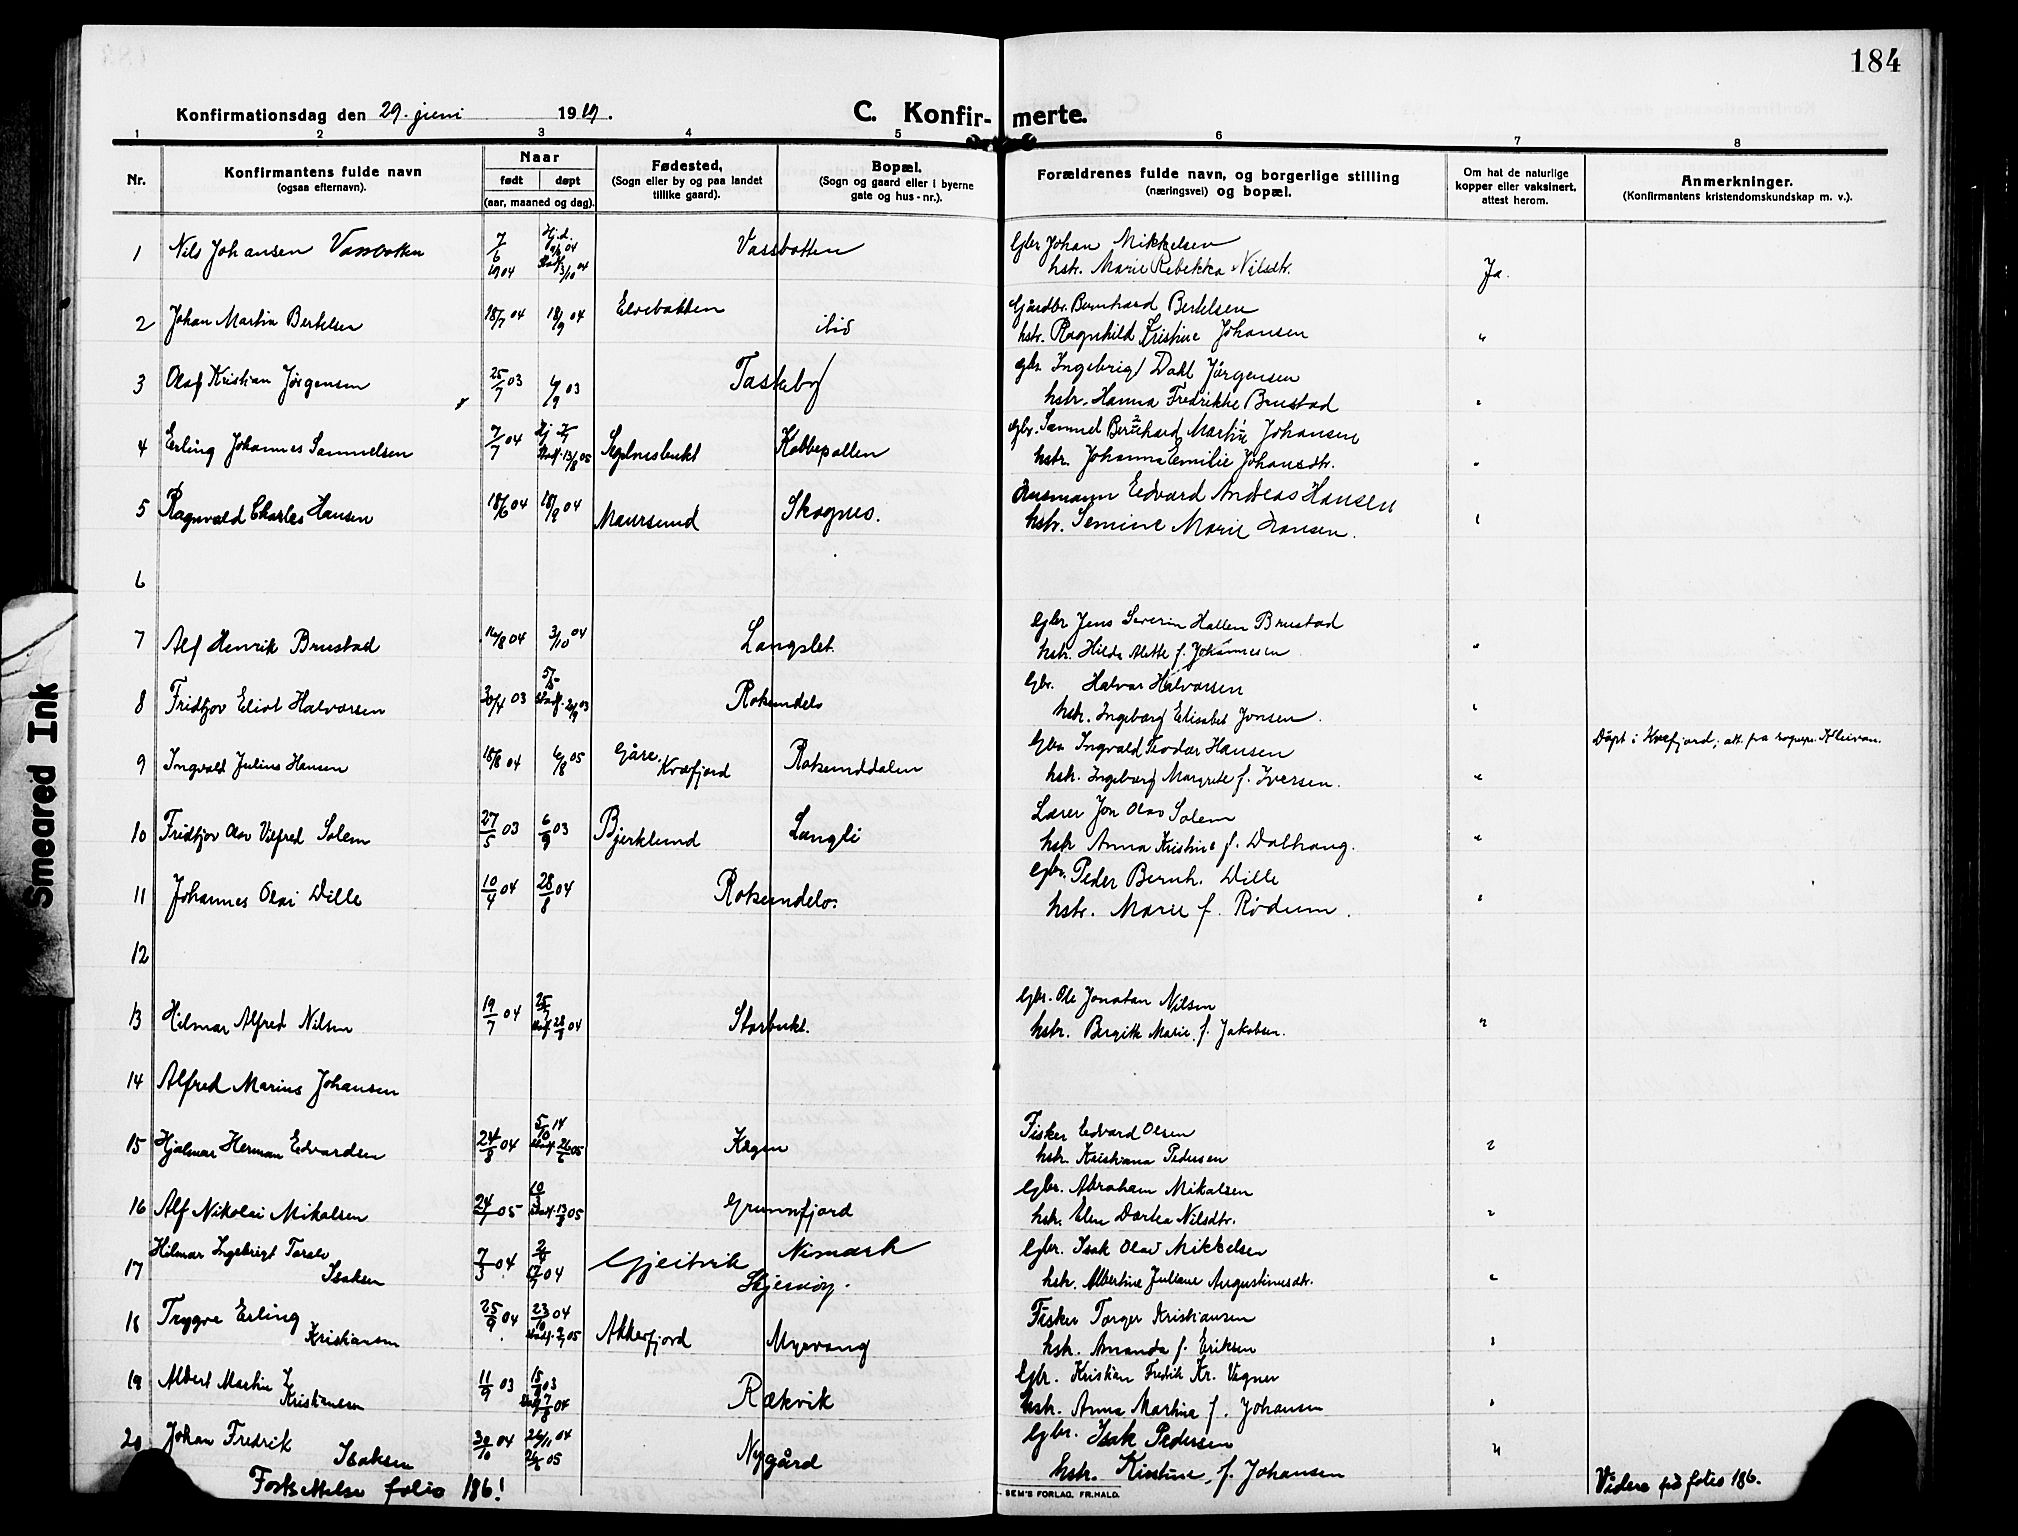 184
Konfirmationsdag den 29. juni 1919.
C. Konfirmerte.
1 2 3 4 5 6 7 8
Nr.
Konfirmantens fulde navn
(ogsaa efternavn).
Naar
født døpt
(aar, maaned og dag).
Fødested,
(Sogn eller by og paa landet
tillike gaard).
Bopæl.
(Sogn og gaard eller i byerne
gate og hus-nr.).
Forældrenes fulde navn, og borgerlige stilling
(næringsvei) og bopæl.
Om hat de naturlige
kopper eller vaksinert,
attest herom.
Anmerkninger.
(Konfirmantens kristendomskundskap m. v.).
1 Nils Johansen Vassbotten 7/6 1904 Hj.d. Stadf. 3/10 04 Vassbotten
Gbr Johan Mikkelsen
hstr. Marie Rebekka Nilsdtr. Ja.
2 Johan Martin Bertelsen 18/7 04 18/9 04 Elvebakken ibid
Gårdbr. Bernhard Bertelsen
hstr. Ragnhild Kristine Johansen "
3 Olaf Kristian Jørgensen 25/7 03 6/9 03 Taskeby
Gbr. Ingebrigt Dahl Jørgensen
hstr. Hanna Fredrikke Brustad "
4 Erling Johannes Samuelsen 7/7 04 Stadf. 13/8 05 Segelnesbukt Kobbepollen
Gbr. Samuel Bernhard Martin Johansen
hstr. Johanna Emilie Johansdtr. "
5 Ragnvald Charles Hansen 18/6 04 18/9 04 Maursund Skognes.
Husmann Edvard Andreas Hansen
hstr. Semine Marie Hansen. "
6
7 Alf Henrik Brustad 16/8 04 3/10 04 Langslet.
Gbr Jens Severin Hallen Brustad
hstr. Hilda Alette f. Johannesen "
8 Fridtjov Eliot Halvorsen 30/4 03 Stadf. 2/9 03 Roksundels
Gbr. Halvar Halvorsen
hstr. Ingeborg Elisabet Jonsen. "
9 Ingvald Julius Hansen 18/8 04 6/8 05 Gåre, Kvæfjord Roksunddalen
Gbr Ingvald Teodor Hansen
hstr. Ingeborg Margrete f. Iversen. "
Døpt i Kvæfjord; att. fra sognepr. Kleivan.
10 Fridtjov Olav Vilfred Solem 27/5 03 6/9 03 Bjerklund Langli
Lærer Jon Olav Solem
hstr Anna Kristine f. Dalhaug. "
11 Johannes Olai Dille 10/4 04 28/8 04 Roksundels.
Gbr. Peder Bernh. Dille
hstr. Marie f. Rødum. "
12
13 Hilmar Alfred Nilsen 19/7 04 25/7 Stadf. 28/8 04 Storbukt.
Gbr. Ole Jonatan Nilsen
hstr. Bergitte Marie f. Jakobsen. "
14 Alfred Marius Johansen
15 Hjalmar Herman Edvardsen 24/8 04 5/10 14 Stadf. 26/6 05 Kågen
Fisker Edvard Olsen
hstr. Kristiana Pedersen "
16 Alf Nikolai Mikalsen 24/1 05 10/3 Stadf. 13/8 05 Grunnfjord
Gbr. Abraham Mikalsen
hstr. Elen Dortea Nilsdtr. "
17 Hilmar Ingebrigt Toralv
Isaksen 7/3 04 Gjeitvik Nimark
Skjervøy.
Gbr. Isak Olav Mikkelsen
hstr. Albertine Juliane Augustinusdtr. "
18 Trygve Erling
Kristiansen 25/9 04 23/10 04 Akkerfjord Myrvang
Fisker Torger Kristiansen
hstr. Amanda f. Eriksen "
19 Albert Martin
Kristiansen 11/9 03 Stadf. 7/8 04 Rækvik
Gbr. Kristian Fredrik Kr. Vagner
hstr. Anna Martina f. Johansen "
20 Johan Fredrik
Isaksen 30/10 04 26/11 04 Nygård
Gbr. Isak Pedersen
hstr. Kistine f. Johansen "
Fortsettelse folio 186!
SEM'S FORLAG. FR.HALD.
Videre på folio 186.
Smeared Ink